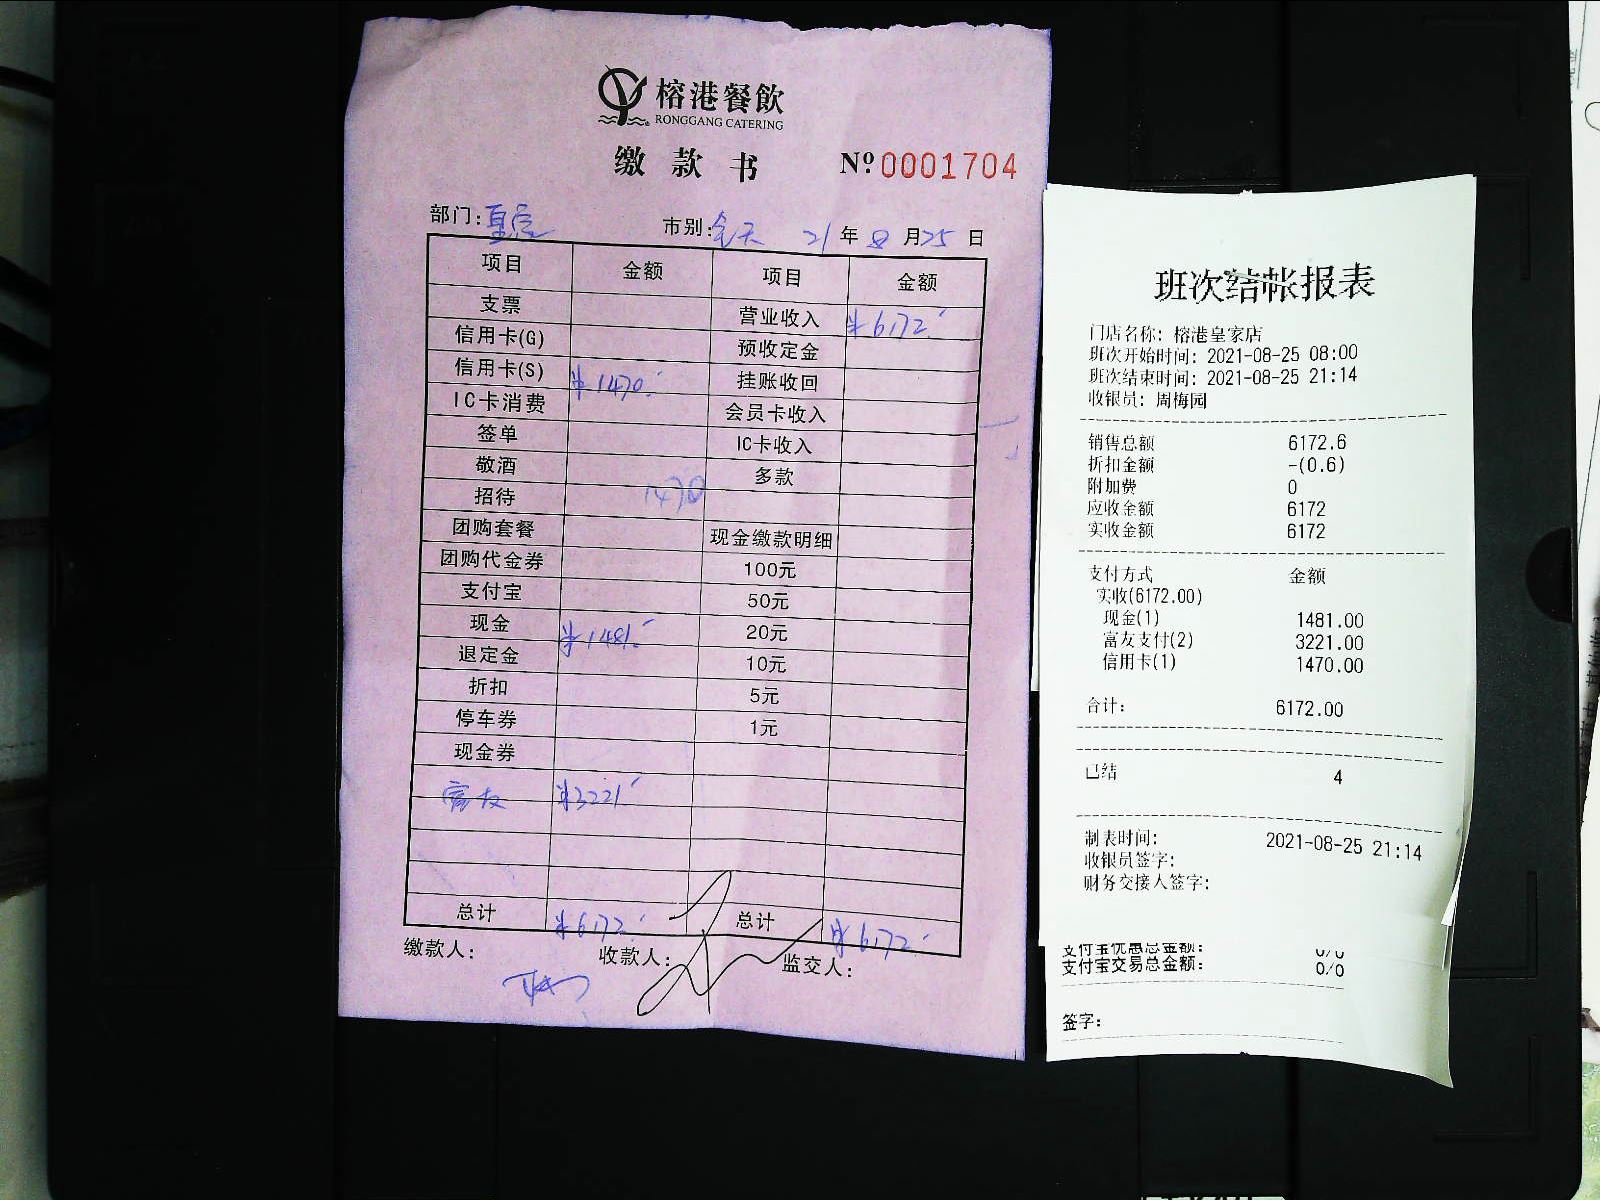 榕港餐飲
RONGGANG CATERING
缴款书 Nº 0001704
部门: 皇家 市别: 全天 21年8月25日
项目 金额 项目 金额
支票 营业收入 ¥6172.
信用卡(G) 预收定金
信用卡(S) ¥1470. 挂账收回
IC卡消费 会员卡收入
签单 IC卡收入
敬酒 多款
招待 1470
团购套餐 现金缴款明细
团购代金券 100元
支付宝 50元
现金 ¥1481. 20元
退定金 10元
折扣 5元
停车券 1元
现金券
富友 ¥3221
总计 ¥6172. 总计 ¥6172.
缴款人: 收款人: 监交人:
班次结帐报表
门店名称: 榕港皇家店
班次开始时间: 2021-08-25 08:00
班次结束时间: 2021-08-25 21:14
收银员: 周梅园
销售总额 6172.6
折扣金额 -(0.6)
附加费 0
应收金额 6172
实收金额 6172
支付方式 金额
实收(6172.00)
现金(1) 1481.00
富友支付(2) 3221.00
信用卡(1) 1470.00
合计: 6172.00
已结 4
制表时间: 2021-08-25 21:14
收银员签字:
财务交接人签字:
支付宝优惠总金额: 0/0
支付宝交易总金额: 0/0
签字: